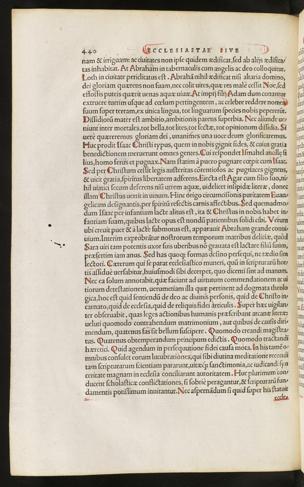 440 ECCLESIASTAE SIVE
nam & irriguam: ac ciuitates non ipse quidem ædificat, sed ab alijs ædifica/
tas inhabitat. At Abraham in tabernaculis cum angelis ac deo colloquitur.
Loth in ciuitate periclitatus est. Abraha nihil ædificat nisi altaria domino,
dei gloriam quærens non suam, nec colit uites, quæ res male cessit Noe, sed
effossis puteis quærit uenas aquæ uiuæ. At impij filij Adam dum conantur
extruere turrim usque ad cœlum pertingentem, ac celebre reddere nomen
suum super terram, ex unica lingua, tot linguarum species nobis pepererunt.
Dissidiorum mater est ambitio, ambitionis parens superbia. Nec aliunde ue/
niunt inter mortales, tot bella, tot lites, tot sectæ, tot opinionum dissidia. Si
uere quæreremus gloriam dei, unanimes una uoce deum glorificaremus.
Huc prodit Isaac Christi typus, quem in nobis gigni fides, & cuius gratia
benedictionem meruerunt omnes gentes. Cui respondet Ismahel ancillæ fi
lius, homo feris & pugnax. Nam statim à puero pugnare cœpit cum Isaac.
Sed per Christum eiecta legis austeritas contentiosos ac pugnaces gignens,
& uicit gratia, spiritus libertatem adferens. Eiecta est Agar cum filio suo, ni/
hil uehens secum deserens nisi utrem aquæ, uidelicet insipidæ literæ, donec
illam Christus uerit in uinum. Hinc origo circumcisionis puritatem Euan/
gelicam designantis, per spiritum resectis carnis affectibus. Sed quemadmo
dum Isaac per infantiam lacte alitus est, ita & Christus in nobis habet in/
fantiam suam, quibus lacte opus est non dum panis solidi cibi. Verum
ubi creuit puer & à lacte submotus est, apparauit Abraham grande conui
uium. Interim exprobratur nostrorum temporum matribus deliciæ, quòd
Sara uiri tam potentis uxor suis uberibus non grauata est lactare filiũ suum,
præsertim iam anus. Sed has quoque formas desino persequi, ne tædio sim
lectori. Cæterum qui se parat ecclesiastico muneri, quia in scripturarũ hor/
tis assidue uersabitur, huiusmodi sibi decerpet, quo dicenti sint ad manum.
Nec ea solum annotabit, quæ faciunt ad uirtutum commendationem ac ui
tiorum detestationem, uerumetiam illa quæ pertinent ad dogmata theolo
gica, hoc est quid sentiendum de deo ac diuinis personis, quid de Christo in/
carnato, quid de ecclesia, quid de reliquis fidei articulis. Super hæc uigilan/
ter obseruabit, quas leges actionibus humanis præscribant arcanæ literæ:
ueluti quomodo contrahendum matrimonium, aut quibus de causis diri/
mendum, quatenus fas sit bellum suscipere. Quomodo erendi magistra/
tus. Quatenus obtemperandum principum edictis. Quomodo tractandi
hæretici. Quid agendum in persequutione fidei causa mota. In his tamē o/
mnibus consulet eorum lucubrationes, qui sibi diutina meditatione recondi
tam scripturarum scientiam pararunt, uitæque sanctimonia, ac iudicandi sy/
ceritate magnam in ecclesia conciliarunt autoritatem. Huc plurimum con/
ducent scholasticæ conflictationes, si sobrie peragantur, & scripturarũ fun/
damentis potissimum innitantur. Nec aspernandum si quid super his statuit
eccle/